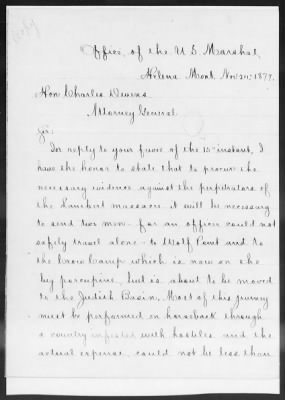 Office, of the U.S. Marshal,
Helena Mont. Nov. 24, 1879.
Hon Charles Devens
Attorney General
Sir:
In reply to your favor of the 15th instant, I
have the honor to state that to procure the
necessary evidence against the perpetrators of
the massacre it will be necessary
to send two men - for an officer could not
safely travel alone - to Wolf Point and to
the Crow Camp which is now on the
big porcupine, but is about to be moved
to the Judith Basin. Most of this journey
must be performed on horseback through
a country infested with hostiles and the
actual expense, could not be less than